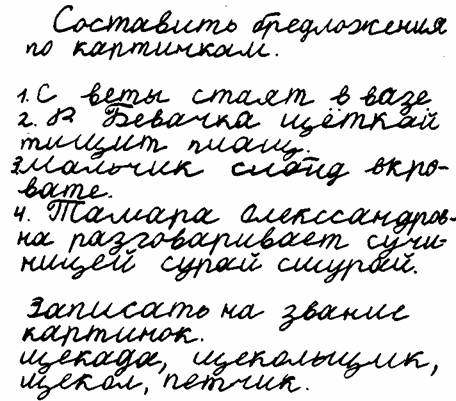 Составить бредложения
по картинкам.
1. С веты стаят в вазе
2. К Бевачка щёткай
тищит плащ.
3 мальчик слайд вкро-
вате.
4. Тамара Олекссандров-
на разговаривает сучи-
ницей сурай сшурай.
Записать на звание
картинок.
щекада, щекольщик,
щекол, петчик.